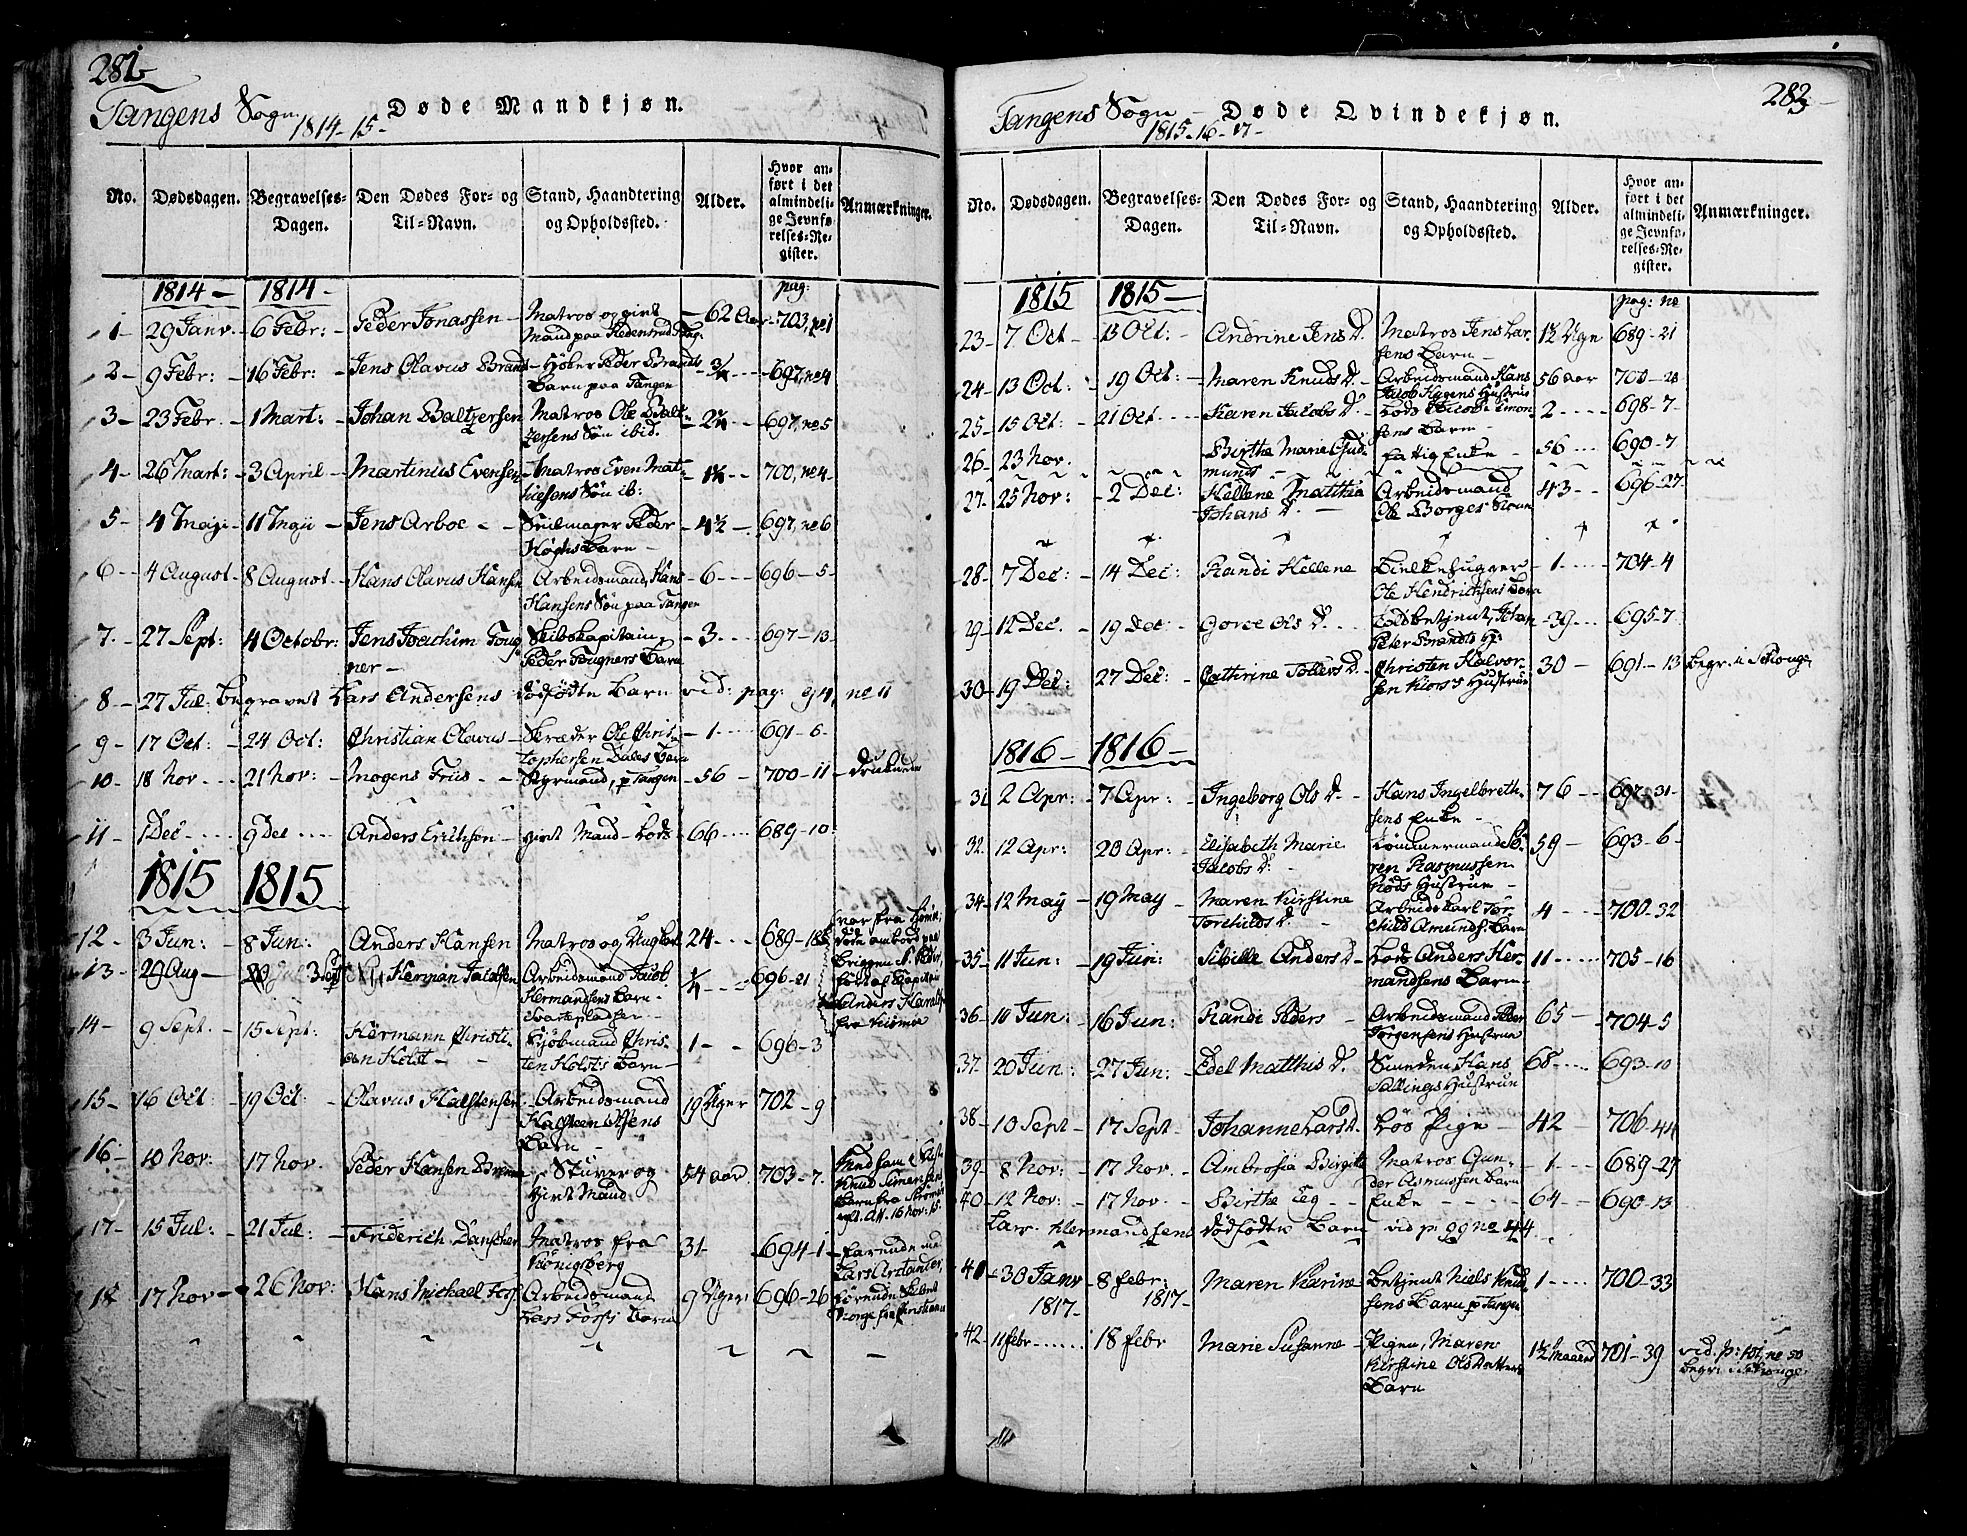 282
Tangens Sogn Døde Mandkjøn.
1814-15-
No. Dødsdagen. Begravelses-Dagen. Den Dødes For- og Til-Navn. Stand, Haandtering og Opholdssted. Alder. Hvor anført i det almindelige Jevnførelses-Register. Anmærkninger.
1814 - 1814 - pag:
1 - 29 Janv. - 6 Febr: - Peder Jonassen - Matros og givt - 62 Aar - 703, no 1
Mand paa
2 - 9 Febr: - 16 Febr: - Jens Olavus Brandt - Høker Peder Brandts - 697, no 4
Barn paa Tangen
3 - 23 Febr - 1 Mart: - Johan Baltzersen Matros Ole Balt- - 697, no 5
zersens Søn ibid.
4 - 26 Mart: - 3 April - Martinus Evensen - Matros Even Mat- - 700, no 4
hiesens Søn ib:
5 - 4 Maji - 11 Maji - Jens Arboe - - Seilmager Peder - 4½ - 697, no 6
Høghs Barn -
6 - 4 August - 8 August - Hans Olavus Hansen Arbeidsmand, Hans - 6 - 696 - 5 -
Hansens Søn paa Tangen
7 - 27 Sept: - 4 Octobr: Jens Joachim Foug- Skibskapitain, - 3 - 697 - 13 -
ner - Peder Fougners Barn
8 - 27 Jul: begravet Lars Andersens dødfødte Barn vid: pag: 94, no 11
9 - 17 Oct: - 24 Oct: Christian Olavus - Skræder Ole Chris- - 1 - 691 - 6 -
tophersen Dales Barn
10 - 18 Nov - 21 Nov: - Mogens Friis - - Styrmand, p Tangen - 56 - 700 - 11 - Druknede
11 - 1 Dec - 9 Dec - Anders Erichsen - givt Mand - Lods 66 - 689 - 10 -
1815 1815
12 - 3 Jun: - 8 Jun: Anders Hansen Matros og Ungkarl 24 - 689 - 18 var fra
døde ombord paa
Briggen
ført af Capitain
Anders
fra
13 - 29 Aug - 3 Sept Herman Jacobsen Arbeidsmand Jacob ¼ - 696 - 21
Hermandsens Barn -
Svartepladsen -
14 - 9 Sept. - 15 Sept: Hermann Christi- Sjøbmand Chris- 1 - 696 - 3
an Holst - - ten Holsts Barn -
15 - 16 Oct: - 19 Oct: - Olavus Halstensen - Arbeidsmand 19 Uger 702 - 9
Halsteen Olsens
Barn -
16 - 10 Nov: 17 Nov. - Peder Hansen - Stuver og 54 aar 703 - 7.
givt Mand
Knud
17 - 15 Jul: - 21 Jul: - Friderich Matros fra 31 - 694 - 1 -
Königsberg
18 17 Nov - 26 Nov: Hans Michael Foss Arbeidsmand 9 Uger 696 - 26
Lars Foss's Barn
283
Tangens Sogn - Døde Qvindekjøn.
1815-16-17-
No. Dødsdagen. Begravelses-Dagen. Den Dødes For- og Til-Navn. Stand, Haandtering og Opholdssted. Alder. Hvor anført i det almindelige Jevnførelses-Register. Anmærkninger.
1815 1815 - pag: no
23 - 7 Oct - 13 Oct: - Andrine Jens D. Matros Jens Lar- 12 Ugr 689 - 21
sens Barn -
24 - 13 Oct: - 19 Oct: - Maren Knuds D. - Arbeidsmand Hans 56 aar 700 - 28
Jacob Hustrue
25 - 15 Oct: - 21 Oct - Karen Jacobs D. - Lods Jacob Simon- 2 - 698 - 7 -
sens Barn -
26 - 23 Nov. Birthe Marie Gud- fattig Enke - 56 - 690 - 7
munds -
27 - 25 Nov: - 2 Dec: - Hellene Matthea Arbeidsmand 43 - 696 - 27
Johans D. - Ole Borges Kone
28 - 7 Dec: - 14 Dec: Randi Hellene Bielkehugger - 1 - 704 - 4
Ole Hendrichsens Barn
29 - 12 Dec. - 19 Dec - Goroe Ols D. Toldbetjent, Johan - 39 - 695 - 7
Peter Brandts H:
30 - 19 Dec: 27 Dec: - Cathrine Tollevs D. Christen Halvor- 30 - 691 - 13 begr. i Schouge.
sen Hustrue
1816 - 1816 -
31 2 Apr: - 7 Apr: - Ingeborg Ols D. - Hans Ingelbreth- 76 - 697 - 31 -
sens Enke -
32. 12 Apr: - 20 Apr: - Elisabeth Marie Tømmermand Sö- 59 - 693 - 6 -
Jacobs D: - ren Rasmussen
Röds Hustrue -
34 - 12 May - 19 May - Maren Kirstine Arbeidskarl Tor- 4 - 700 - 32
Torchilds D: - child Amunds: Barn
35 - 11 Jun: - 19 Jun: - Sibille Anders D - Lods Anders Her- 11 - 705 - 16
mandsens Barn -
36 - 10 Jun: - 16 Jun: - Randi Peders - Arbeidsmand Peder 65 - 704 - 5
Torgensens Hustrue
37. - 20 Jun: - 27 Jun: - Edel Matthis D. Hans 68 - 693 - 10
Sallings Hustrue
38. - 10 Sept - 17 Sept - Johanne Lars D. Lös Pige - 42 - 706 - 44
39 - 8 Nov: - 17 Nov. - Ambrosia Birgitte Matros Gun- - 1 - 689 - 27
der Asmussens Barn
40 - 12 Nov: - 17 Nov - Birthe Eeg - Enke - - - 64 - 690 - 13
Lars Hermandsens dödfödte Barn - vid p: 99 no 44
41 - 30 Janv - 8 febr: - Maren Karine - Betjent Niels Knud- 1 - 700 - 33
1817 - 1817 - sens Barn p Tangen
42 - 11 febr - 18 febr Marie Susanne - Pigen, Maren 1½ Maaned 701 - 39 vid. p: 101, no 50
Kirstine Olsdatters begr: i Schouge
Barn